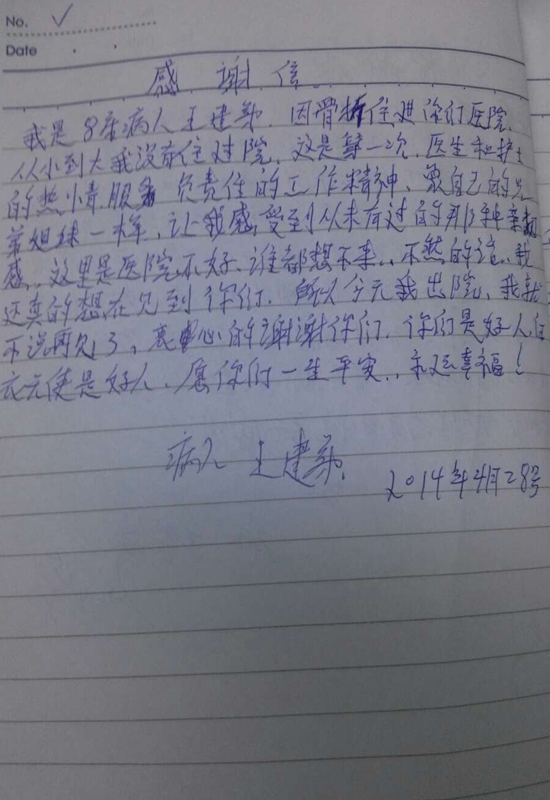 No. ✓
Date
感谢信
我是8床病人王建, 因骨折住进你们医院,
从小到大我没有住过院、这是第一次、医生和护士
的热情服务 负责任的工作精神、象自己的兄
弟姐妹一样、让我感受到从未有过的那种亲切
感、这里是医院不好、谁都想不来、不然的话、我
还真的想在见到你们、所以今天我出院、我就
不说再见了, 衷心的谢谢你们、你们是好人, 白
衣天使是好人、愿你们一生平安、永远幸福!
病人 王建
2014年4月28号